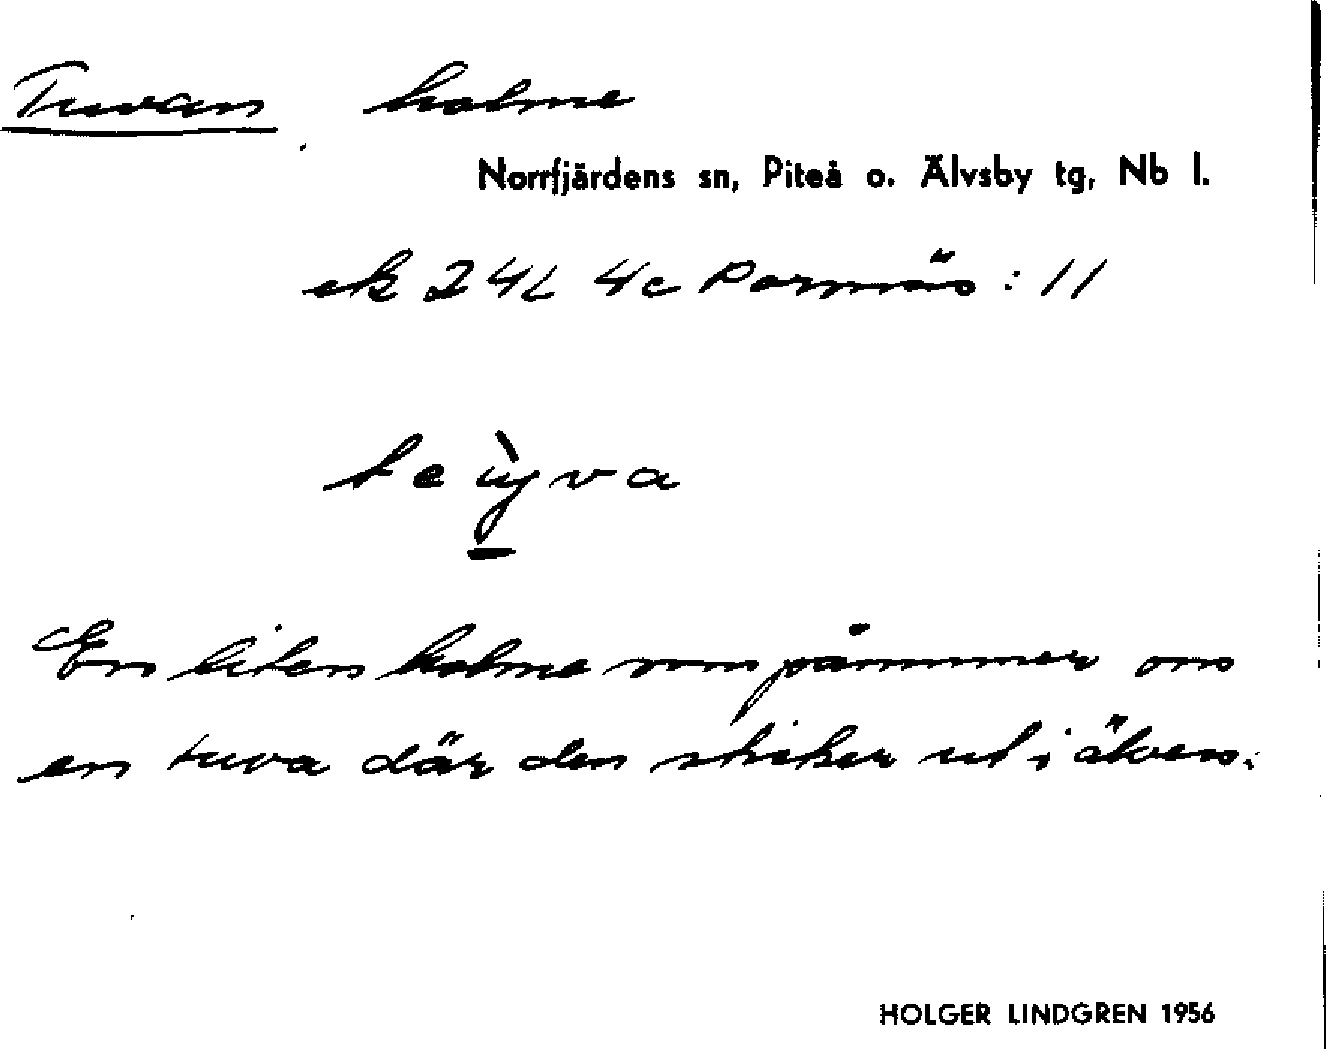 Tuvan holme
Norrfjärdens sn, Piteå o. Älvsby tg, Nb l.
ek 24L 4c Porsnäs: 11
En liten holme som påminner om
en tuva där den sticker ut i älven.
HOLGER LINDGREN 1956